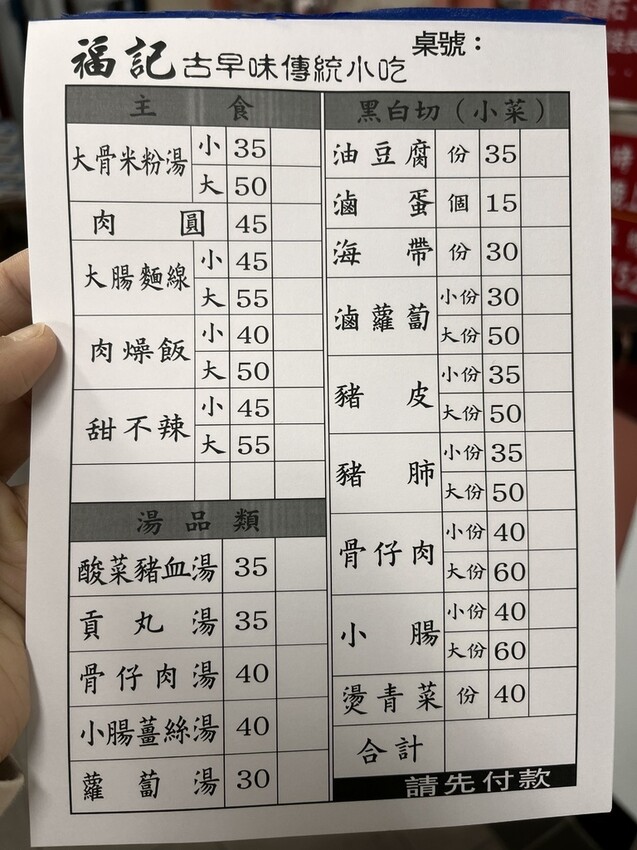 福記古早味傳統小吃
桌號：
主食
大骨米粉湯 小 35
大 50
肉圓 45
大腸麵線 小 45
大 55
肉燥飯 小 40
大 50
甜不辣 小 45
大 55
湯品類
酸菜豬血湯 35
貢丸湯 35
骨仔肉湯 40
小腸薑絲湯 40
蘿蔔湯 30
黑白切（小菜）
油豆腐 份 35
滷蛋 個 15
海帶 份 30
滷蘿蔔 小份 30
大份 50
豬皮 小份 35
大份 50
豬肺 小份 35
大份 50
骨仔肉 小份 40
大份 60
小腸 小份 40
大份 60
燙青菜 份 40
合計
請先付款